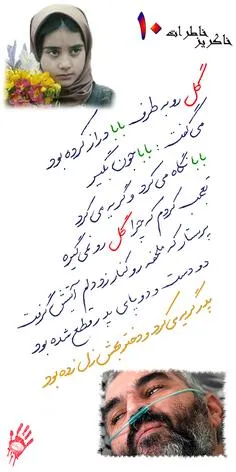 خاکریز خاطرات ۱۰
گل رو به طرف بابا دراز کرده بود
می گفت : بابا جون بگیر
بابا نگاه می کرد و گریه می کرد
تعجب کردم که چرا گل رو نمی گیره
پرستار که ملحفه رو کنار زد دلم آتیش گرفت
دو دست و دو پای پدر قطع شده بود
پدر گریه می کرد و دختر بهش زل زده بود